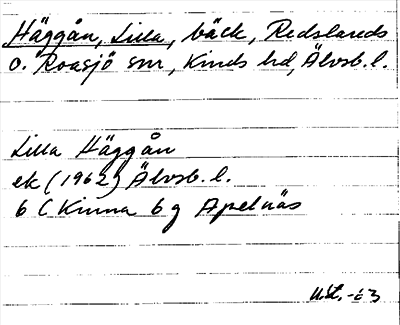 Häggån, Lilla, bäck, Redslareds
o. Roasjö snr, Kinds hd, Älvsb. l.
Lilla Häggån
ek (1962) Älvsb. l.
6 C Kinna 6 g Apelnäs
U.St. -63